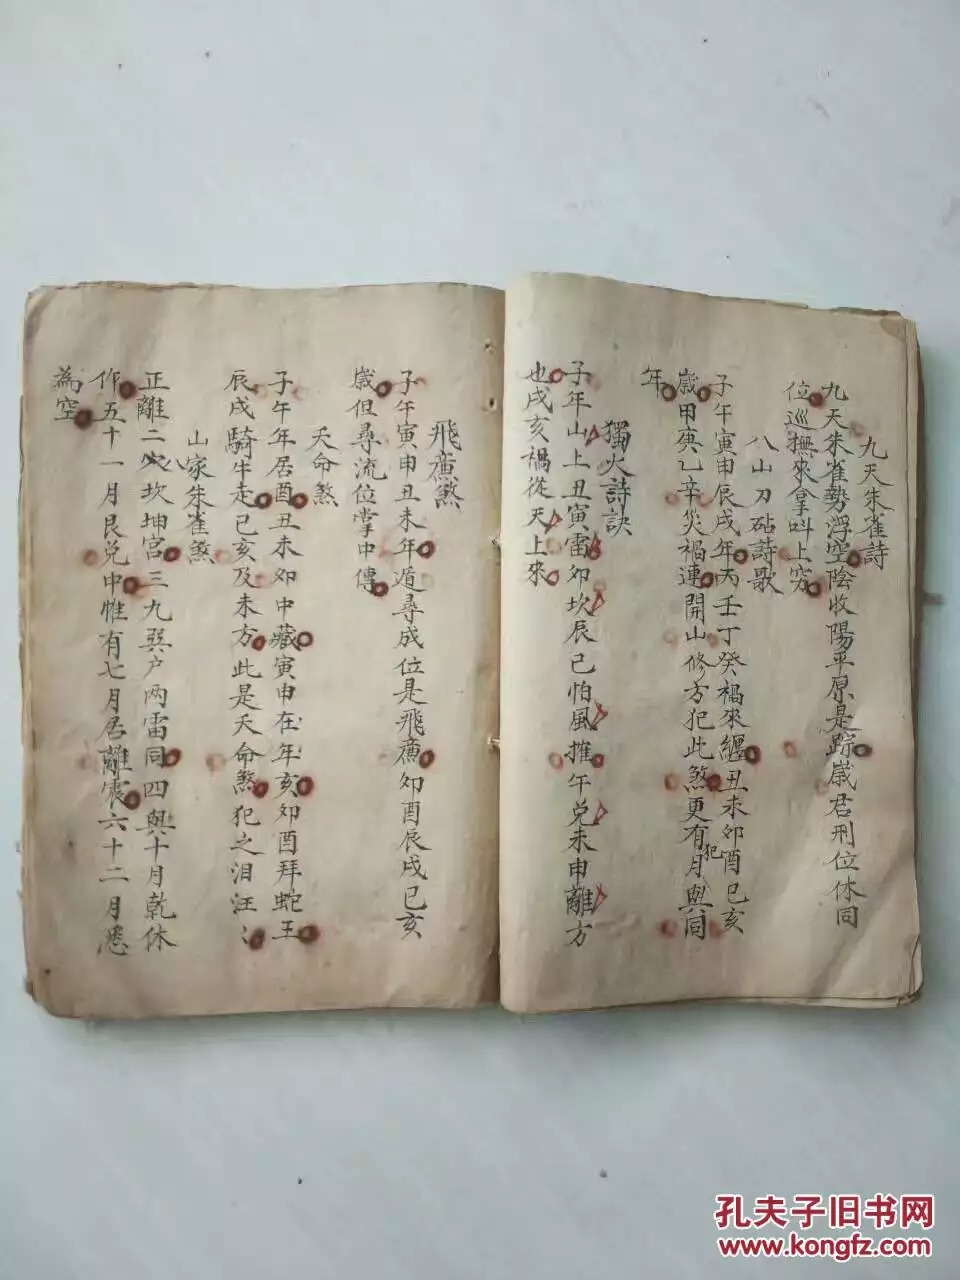 九天朱雀詩
九天朱雀勢浮空陰收陽平原是踪歲君刑位休同
位巡撫來拿叫上穷
八山刀砧詩歌
子午寅申辰戌年丙壬丁癸禍來纏丑未卯酉巳亥
歲甲庚乙辛災禍連開山修方犯此煞更有犯月與同
年
獨火詩訣
子年山上丑寅雷卯坎辰巳怕風摧午兌未申離方
也戌亥禍從天上來
飛廉煞
子午寅申丑未年遁尋成位是飛廉卯酉辰戌巳亥
歲但尋流位掌中傳
天命煞
子午年居酉丑未卯中藏寅申在年亥卯酉拜蛇王
辰戌騎牛走巳亥及未方此是天命煞犯之泪汪〻
山家朱雀煞
正離二六八坎坤宮三九巽户两雷同四與十月乾休
作五十一月艮兌中惟有七月居離震六十二月悉
為空
孔夫子旧书网
www.kongfz.com